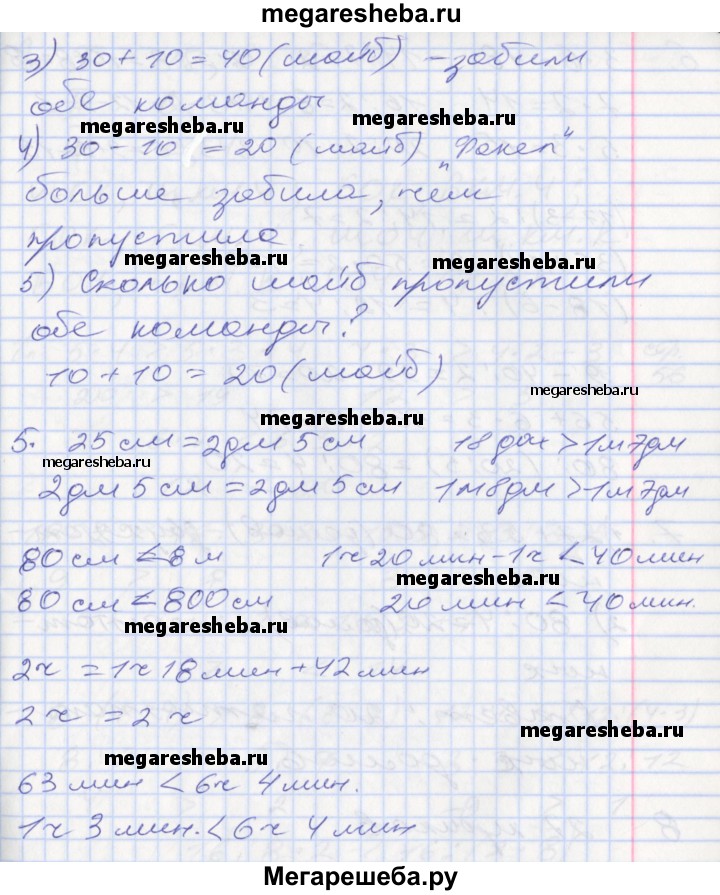 megaresheba.ru
3) 30 + 10 = 40 (шайб) - забили
обе команды
megaresheba.ru
4) 30 - 10 = 20 (шайб) "Факел"
больше забила, чем
пропустила.
megaresheba.ru megaresheba.ru
5) Сколько шайб пропустили
обе команды?
10 + 10 = 20 (шайб)
megaresheba.ru
megaresheba.ru
5. 25 см = 2 дм 5 см 18 дм > 1 м 7 дм
megaresheba.ru
2 дм 5 см = 2 дм 5 см 1 м 8 дм > 1 м 7 дм
80 см < 8 м 1 ч 20 мин - 1 ч < 40 мин
megaresheba.ru
80 см < 800 см 20 мин < 40 мин.
megaresheba.ru
2 ч = 1 ч 18 мин + 42 мин
2 ч = 2 ч
megaresheba.ru
megaresheba.ru
63 мин < 6 ч 4 мин.
1 ч 3 мин. < 6 ч 4 мин
Мегарешеба.ру